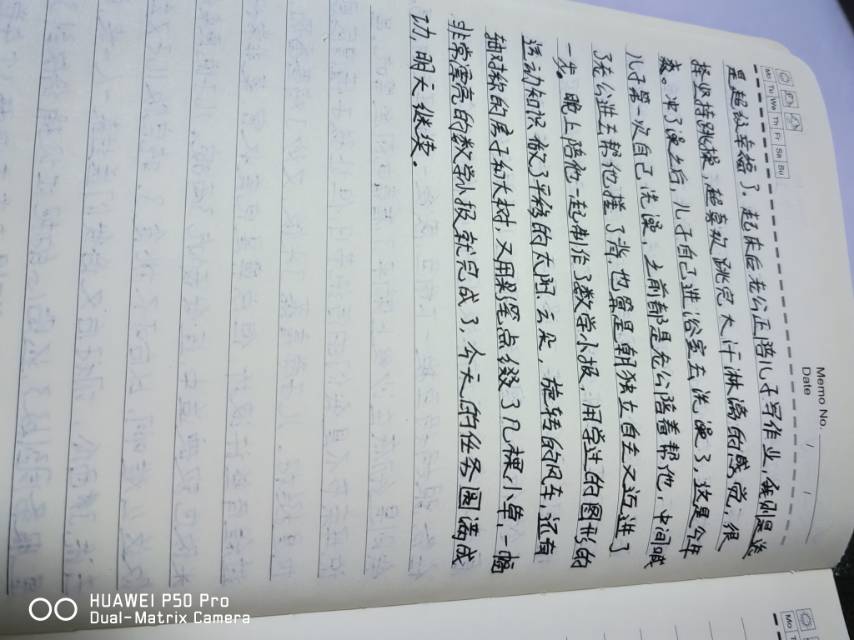 Memo No.
Date / /
Mo Tu We Th Fr Sa Su
是超级幸福了。起床后老公正陪儿子写作业,我则是选
择坚持跳操,超喜欢跳完大汗淋漓的感觉,很
爽。冲了澡之后,儿子自己进浴室去洗澡了,这是今年
儿子第一次自己洗澡,之前都是老公陪着帮他,中间喊
了老公进去帮他搓了背,也算是朝独立自主又迈进了
一步。晚上陪他一起制作了数学小报,用学过的图形的
运动知识做了平移的太阳、云朵,旋转的风车,还有
轴对称的房子和大树,又用彩笔点缀了几棵小草,一幅
非常漂亮的数学小报就完成了,今天的任务圆满成
功,明天继续。
Mo
HUAWEI P50 Pro
Dual-Matrix Camera